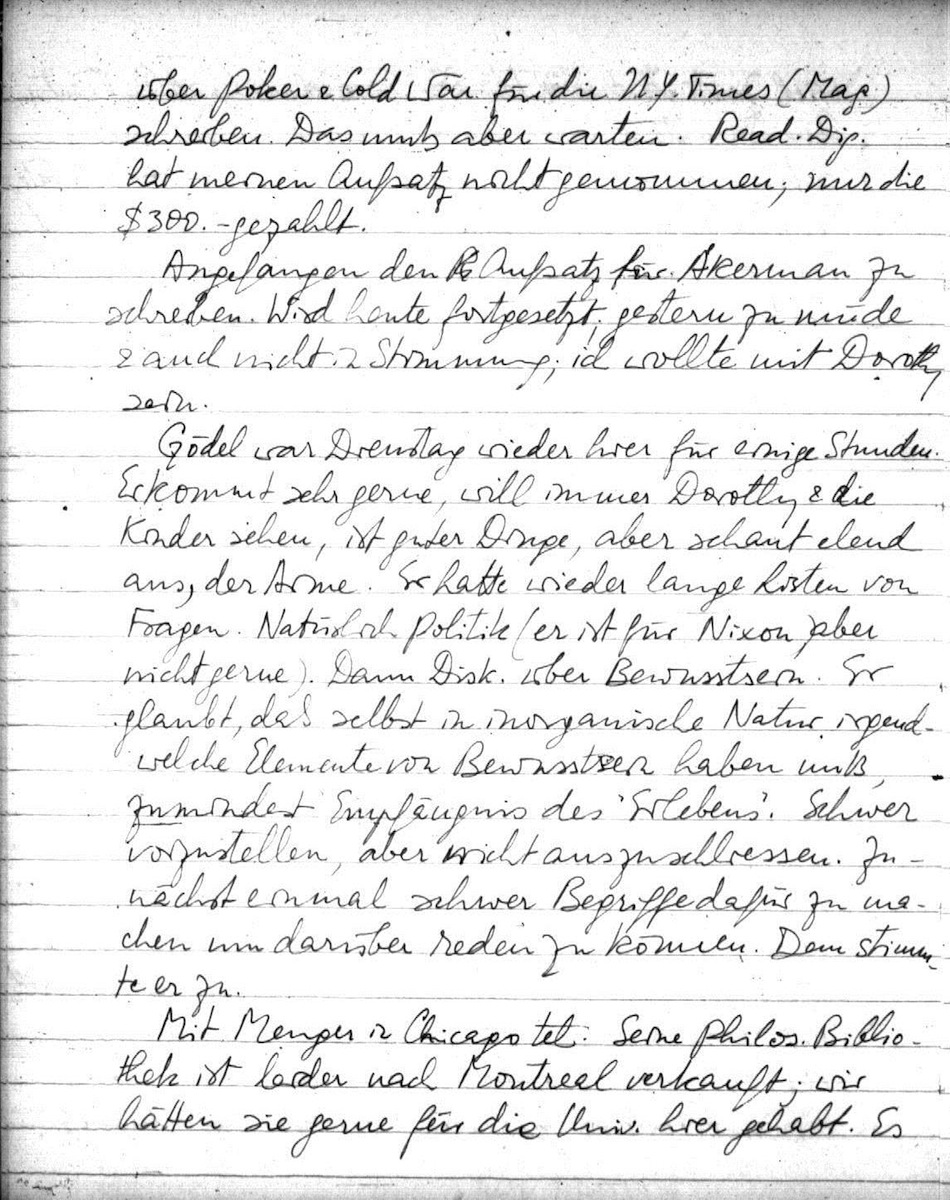 über Poker & Cold War für die N.Y. Times (Mag.)
schreiben. Das muß aber warten. Read. Dig.
hat meinen Aufsatz nicht genommen; nur die
$300.- gezahlt.
Angefangen den Aufsatz für Akerman zu
schreiben. Wird heute fortgesetzt; gestern zu müde
& auch nicht in Stimmung; ich wollte mit Dorothy
sein.
Gödel war Dienstag wieder hier für einige Stunden.
Er kommt sehr gerne, will immer Dorothy & die
Kinder sehen, ist guter Dinge, aber schaut elend
aus, der Arme. Er hatte wieder lange Listen von
Fragen. Natürlich Politik (er ist für Nixon, aber
nicht gerne). Dann Disk. über Bewusstsein. Er
glaubt, daß selbst in inorganische Natur irgend-
welche Elemente von Bewusstsein haben muß,
zumindest Empfängnis des 'Erlebens'. Schwer
vorzustellen, aber nicht auszuschliessen. Zu-
nächst einmal schwer Begriffe dafür zu ma-
chen um darüber reden zu können. Dem stimm-
te er zu.
Mit Menger in Chicago tel. Seine philos. Biblio-
thek ist leider nach Montreal verkauft; wir
hätten sie gerne für die Univ. hier gehabt. Es